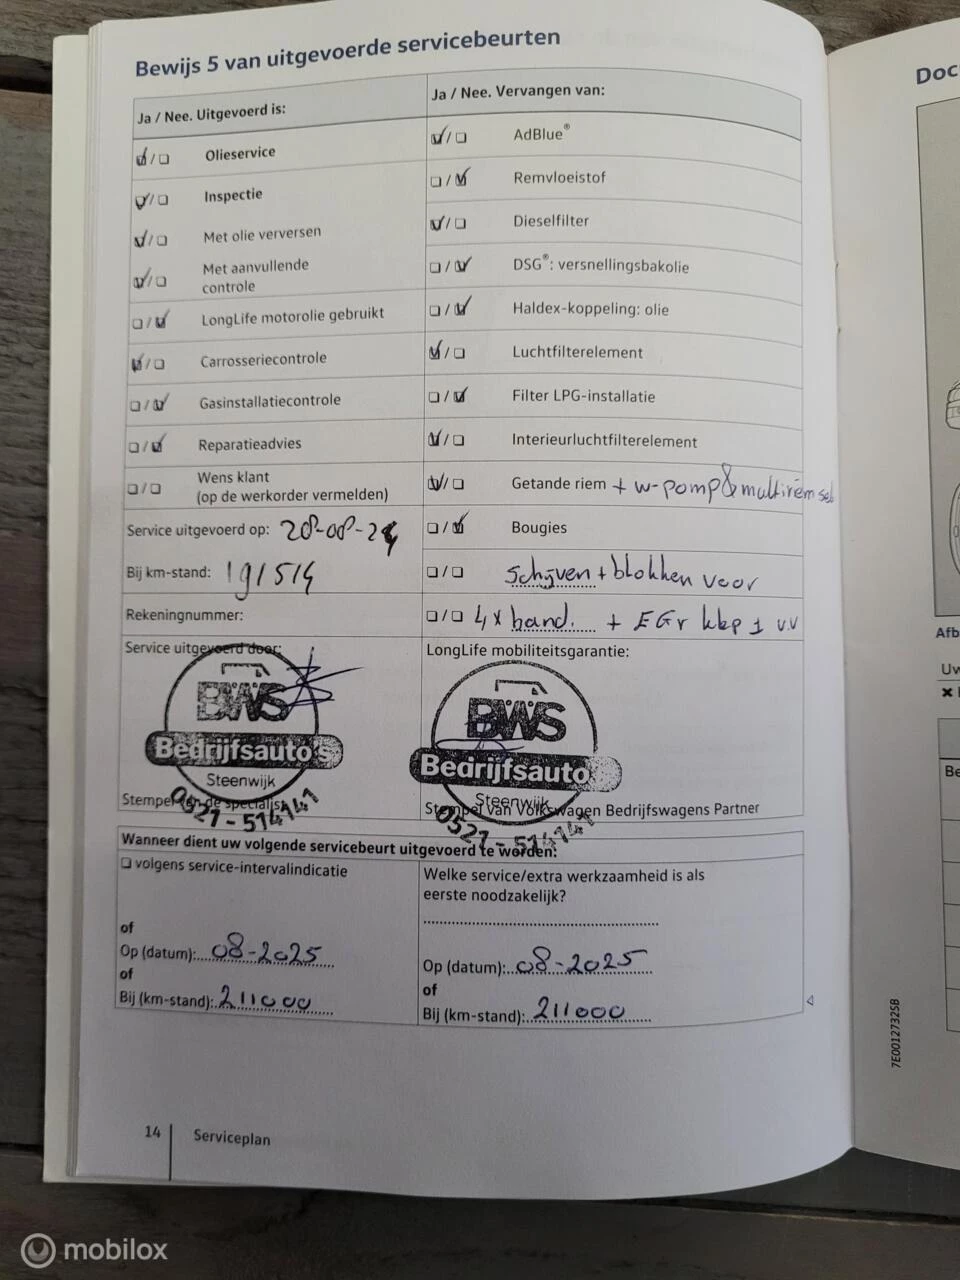 Bewijs 5 van uitgevoerde servicebeurten
Ja / Nee. Uitgevoerd is:
Olieservice
Inspectie
Met olie verversen
Met aanvullende
controle
LongLife motorolie gebruikt
Carrosseriecontrole
Gasinstallatiecontrole
Reparatieadvies
Wens klant
(op de werkorder vermelden)
Service uitgevoerd op: 28-08-24
Bij km-stand: 191514
Rekeningnummer:
Service uitgevoerd door:
BWS
Bedrijfsauto's
Steenwijk
0521-514141
Stempel van de specialist
Ja / Nee. Vervangen van:
AdBlue®
Remvloeistof
Dieselfilter
DSG®: versnellingsbakolie
Haldex-koppeling: olie
Luchtfilterelement
Filter LPG-installatie
Interieurluchtfilterelement
Getande riem + w-pomp & multiriem set
Bougies
schijven + blokken voor
4x band. + EGr klep 1 v.v
LongLife mobiliteitsgarantie:
BWS
Bedrijfsauto
Steenwijk
0521-514141
Stempel van Volkswagen Bedrijfswagens Partner
Wanneer dient uw volgende servicebeurt uitgevoerd te worden:
volgens service-intervalindicatie
of
Op (datum): 08-2025
of
Bij (km-stand): 211000
Welke service/extra werkzaamheid is als
eerste noodzakelijk?
Op (datum): 08-2025
of
Bij (km-stand): 211000
14 Serviceplan
7E0012732SB
Doc
Afb
Uw
Be
mobilox